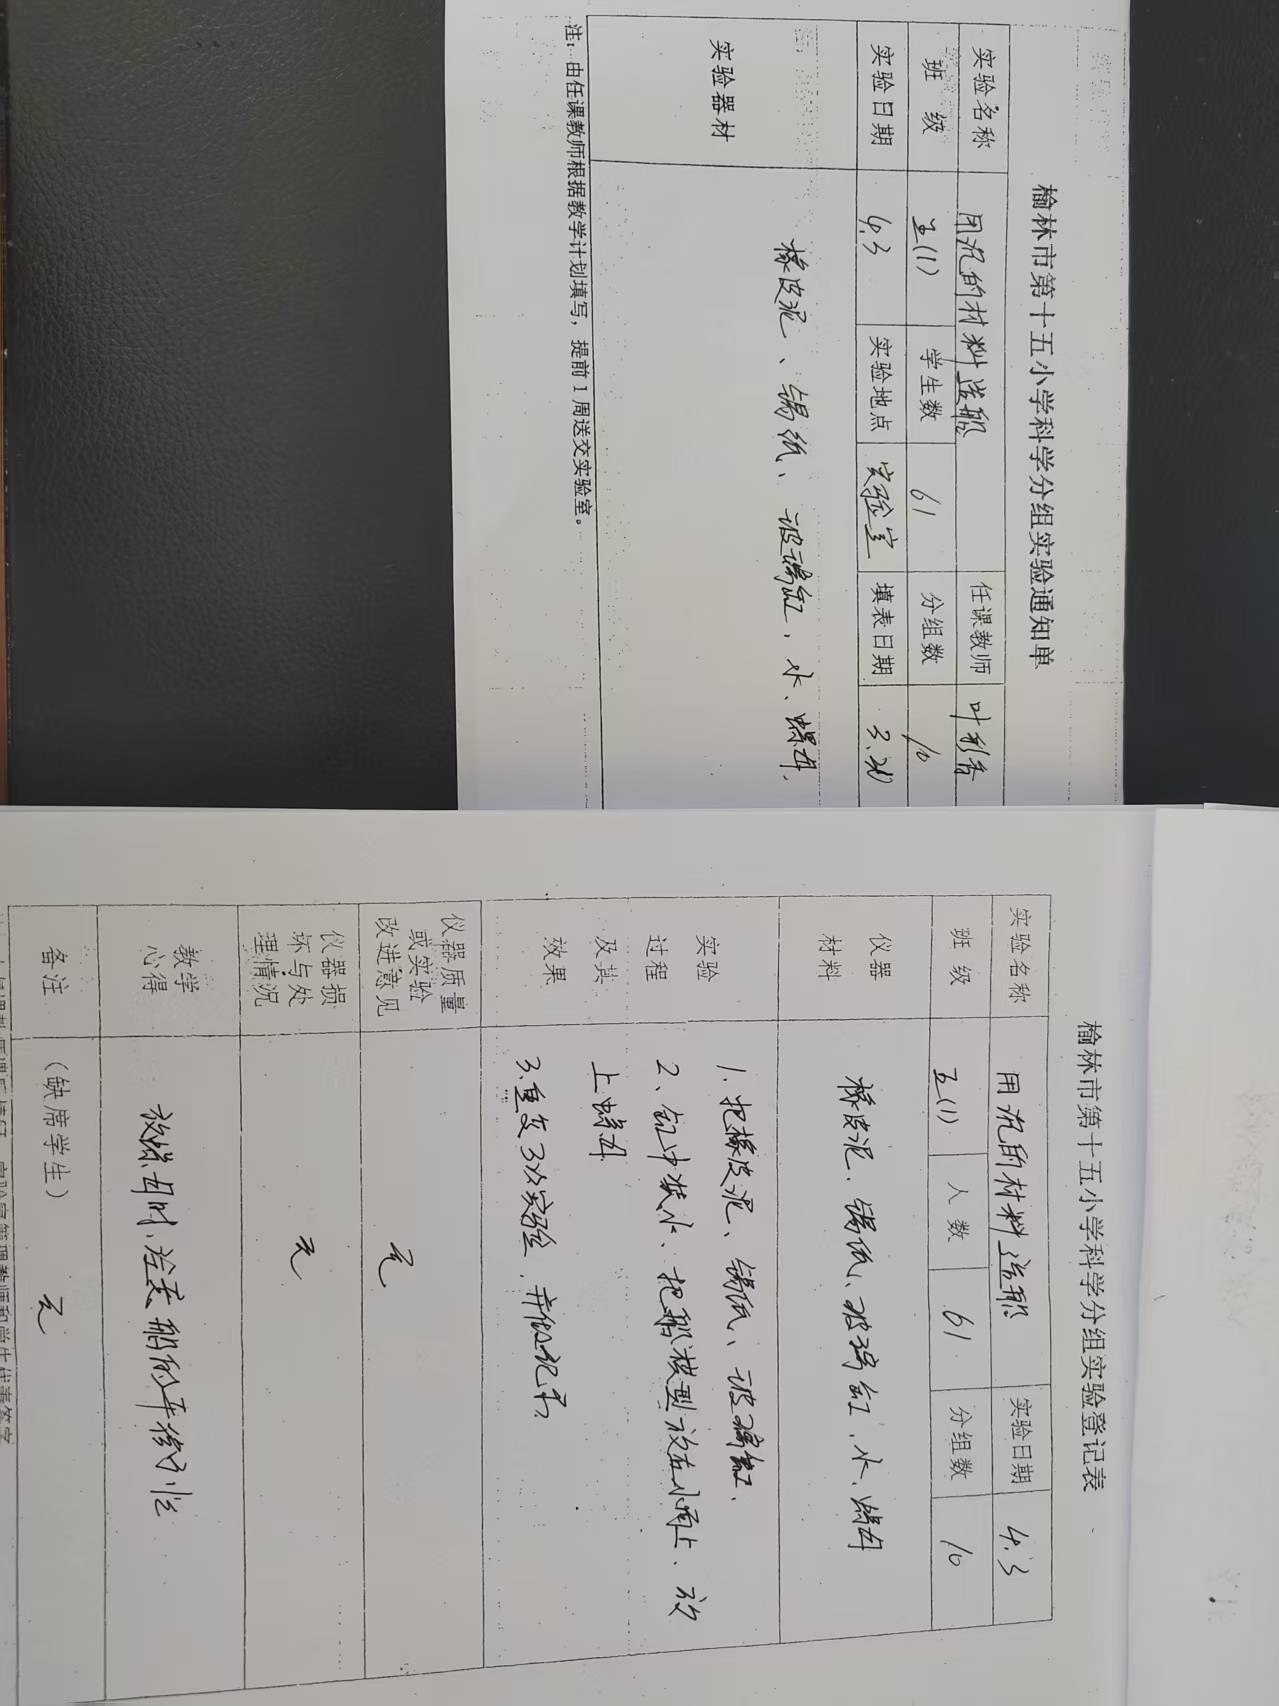 榆林市第十五小学科学分组实验通知单
实验名称 用沉的材料造船 任课教师 叶利香
班级 五(1) 学生数 61 分组数 10
实验日期 4.3 实验地点 实验室 填表日期 3.20
实验器材 橡皮泥、锡纸、玻璃缸、水、螺母.
注：由任课教师根据教学计划填写，提前1周送交实验室。
榆林市第十五小学科学分组实验登记表
实验名称 用沉的材料造船 实验日期 4.3
班级 五(1) 人数 61 分组数 10
仪器材料 橡皮泥、锡纸、玻璃缸、水、螺母
实验过程及其效果
1. 把橡皮泥、锡纸、玻璃缸、
2、缸中装水、把船模型放在水面上、放
上螺母
3.重复3次实验，并做记录
仪器质量或实验改进意见 无
仪器损坏与处理情况 无
教学心得 放螺母时，注意船的平衡
备注 (缺席学生) 无